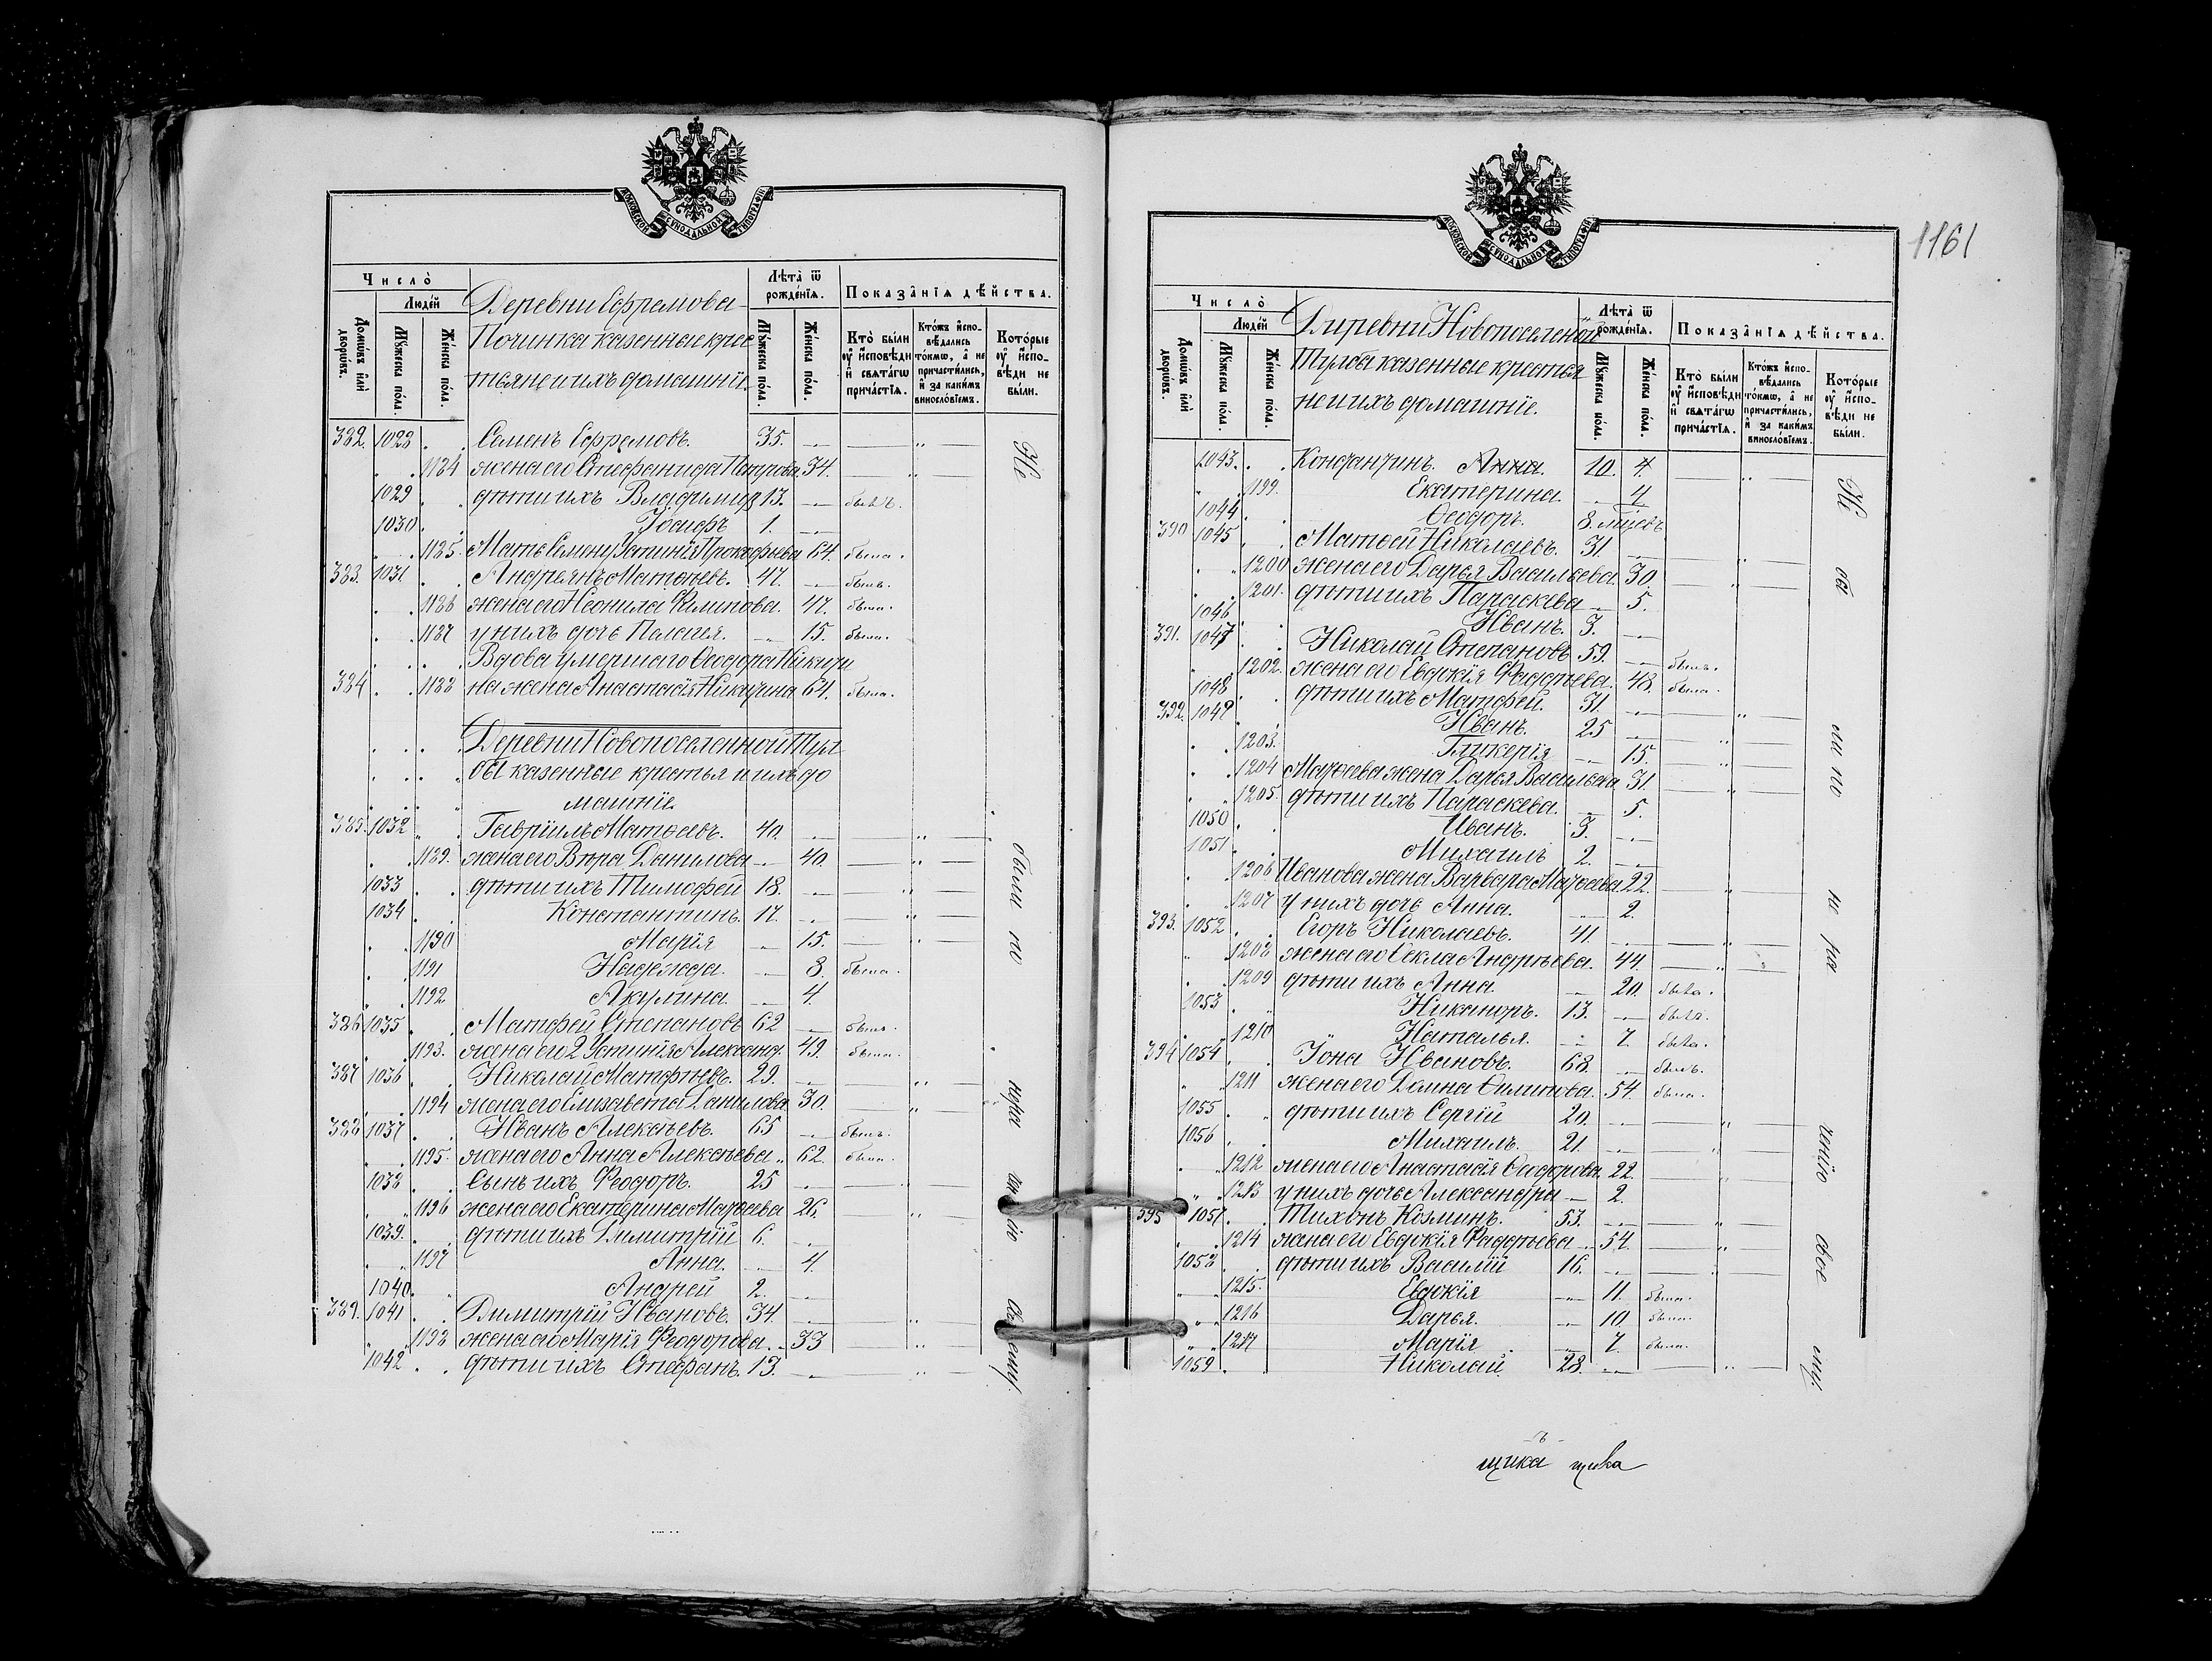 МОСКОВСКОЙ СѴНОДАЛЬНОЙ ТИПОГРАФІИ
Число̀
Людей
Домѡвъ и҆лѝ дворѡ́въ.
Мꙋ́жеска по́ла.
Же́нска по́ла.
Деревни Ефремова
Починка казенные крес
тьяне и ихъ домашніи.
Лѣта̀ ѿ рожде́нїѧ.
Мꙋ́жеска по́ла.
Же́нска по́ла.
Показа̂нїѧ дѣ́йства.
Кто̀ бы́ли ᲂу҆ и҆сповѣди и҆ свѧта́гѡ прича́стїѧ.
Кто́жъ и҆спо- вѣдались то́кмѡ, а҆ не причасти́лись, и҆ за каки́мъ винослѡ́віемъ.
Кото́рые ᲂу҆ и҆спо- вѣди не бы́ли.
382. 1028 Семенъ Ефремовъ. 35.
1184 жена его Стефанида Петрова 34.
1029 дѣти ихъ Владимир 13. былъ.
1030 Іосифъ 1.
1185 Мать Семену Устинія Прокофьева 64. была.
383. 1031 Андреянъ Матѳеевъ. 47. былъ.
1186 жена его Неонила Филипова. 47. была.
1187 у нихъ дочь Пелагея. 15. была.
Вдова умершаго Ѳеодора Никити
384 1188 на жена Анастасія Никитина 64. была.
Деревни Новопоселенной Тул
бы казенные крестья и ихъ до
машніе
385. 1032 Гавріилъ Матѳеевъ. 40.
1189. жена его Вѣра Данилова 40.
1033 дѣти ихъ Тимофей 18.
1034 Константинъ 17.
1190 Марія 15.
1191 Надежда. 8. была.
1192 Акулина. 4.
386 1035 Матфей Степановъ 62 былъ.
1193. жена его 2 Устинія Александ. 49. была.
387 1036 Николай Матфѣевъ. 29.
1194 жена его Елизавета Данилова 30.
388 1037 Иванъ Алексѣевъ. 65 былъ.
1195. жена его Анна Алексѣева 62. была.
1038 Сынъ ихъ Феодоръ. 25
1196 жена его Екатерина Матѳеева 26.
1039. дѣти ихъ Димитрій 6.
1197 Анна. 4.
1040. Андрей 2.
389. 1041 Димитрій Ивановъ. 34.
1198 жена его Марія Феодорова 33
1042 дѣти ихъ Стефанъ. 13.
Не были по нера
1161
МОСКОВСКОЙ СѴНОДАЛЬНОЙ ТИПОГРАФІИ
Число̀
Людей
Домѡвъ и҆лѝ дворѡ́въ.
Мꙋ́жеска по́ла.
Же́нска по́ла.
Диревни Новопоселеной
Тулва казенные крестья
не и ихъ домашніе.
Лѣта̀ ѿ рожде́нїѧ.
Мꙋ́жеска по́ла.
Же́нска по́ла.
Показа̂нїѧ дѣ́йства.
Кто̀ бы́ли ᲂу҆ и҆сповѣди и҆ свѧта́гѡ прича́стїѧ.
Кто́жъ и҆спо- вѣдались то́кмѡ, а҆ не причасти́лись, и҆ за каки́мъ винослѡ́віемъ.
Кото́рые ᲂу҆ и҆спо- вѣди не бы́ли.
1043. Константинъ. Анна. 10. 4.
1199. Екатерина. 4
1044 Ѳеодоръ. 8. мѣсев
390 1045 Матѳей Николаевъ. 31.
1200 жена его Дарья Васильева. 30.
1201. дѣти ихъ Параскева 5.
1046. Иванъ. 3.
391. 1047 Николай Степановъ 59. былъ.
1202. жена его Евдокія Фаддѣева. 48. была.
1048 дѣти ихъ Матфей. 31.
392. 1049 Иванъ. 25
1203. Гликерія 15.
1204 Матѳеева жена Дарья Васильева 31.
1205. дѣти ихъ Параскева. 5.
1050 Иванъ. 3.
1051 Михаилъ 2.
1206 Иванова жена Варвара Матѳеева 22.
1207 у нихъ дочь Анна. 2.
393. 1052 Егоръ Николаевъ. 41.
1208 жена его Ѳекла Андрѣева. 44.
1209 дѣти ихъ Анна. 20. была.
1053 Никаноръ. 13. былъ.
1210 Наталья. 7. была.
394 1054 Іона Ивановъ. 68. былъ.
1211 жена его Домна Филипова. 54. была.
1055 дѣти ихъ Сергій 20.
1056 Михаилъ. 21.
1212 жена его Анастасія Ѳеодорова. 22.
1213 у нихъ дочь Александра 2.
395 1057 Тихонъ Козминъ. 53.
1214 жена его Евдокія Фаддѣева 54.
1058 дѣти ихъ Василій 16.
1215. Евдокія 11. была.
1216 Дарья. 10. была.
1217 Марія 7. была.
1059 Николай. 28.
Не бы ли по не ра чению свое му.
щика